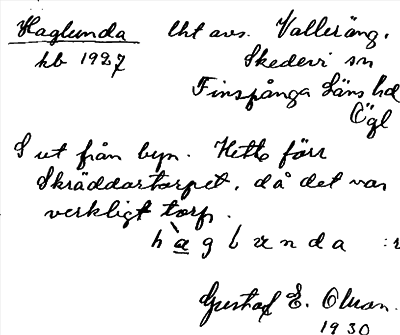 Haglunda lht avs. Valleräng.
kb 1927 Skedevi sn
Finspånga läns hd
Ögl
S ut från byn. Hette förr
Skräddartorpet, då det var
verkligt torp.
hàglunda
Gustaf E. Olson.
1930